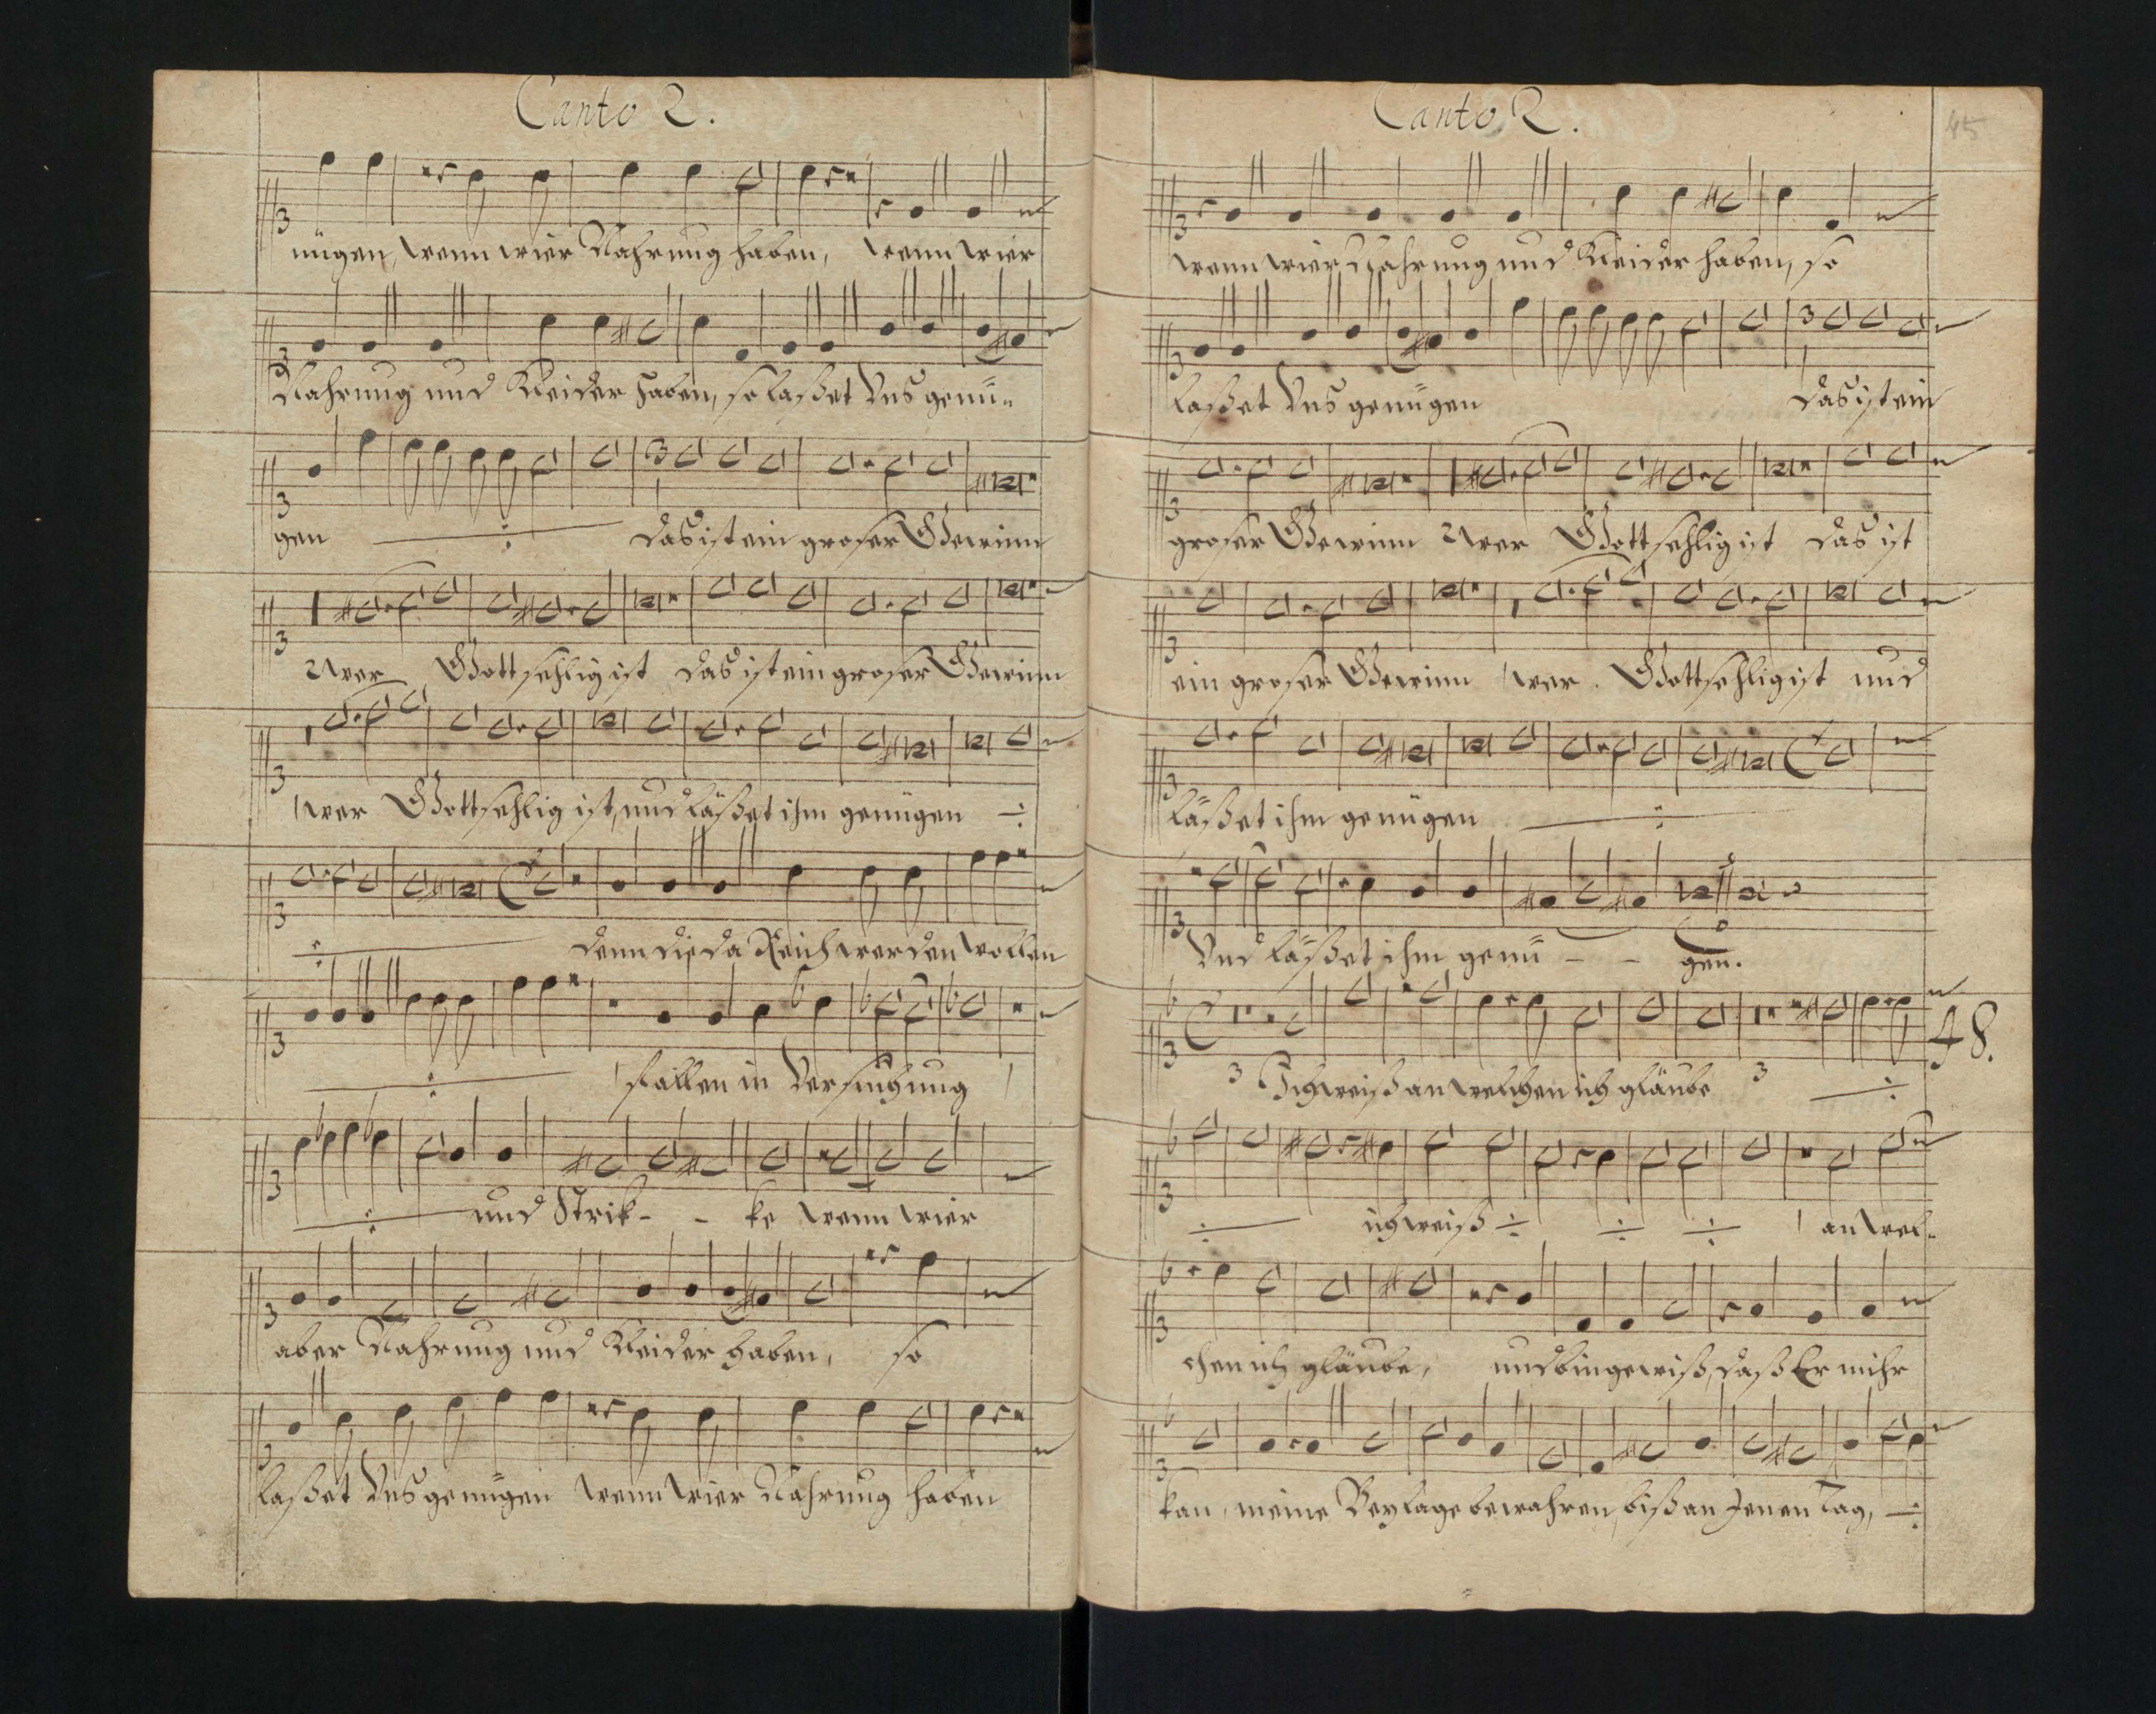 Canto 2.
nügen, wenn wier Nahrung haben, wenn wier
Nahrung und Kleider haben, so laßet Uns genü-
gen ÷ das ist ein großer Gewinn
Wer Gottsehlig ist das ist ein großer Gewinn
wer Gottsehlig ist, und läßet ihm genügen ÷
÷ denn die da Reich werden wollen
÷ fallen in Versuchung
÷ und Strik- - ke wenn wier
aber Nahrung und Kleider haben, so
laßet Uns genügen wenn wier Nahrung haben
Canto 2.
45
wenn wier Nahrung und Kleider haben, so
laßet Uns genügen das ist ein
großer Gewinn Wer Gottsehlig ist das ist
ein großer Gewinn wer Gottsehlig ist und
läßet ihm genügen ÷
Und läßet ihm genü - - gen.
48.
3 Ich weiß an welchen ich gläube 3 ÷
÷ ich weiß ÷ ÷ ÷ an wel-
chen ich gläube, und bin gewiß, daß Er mihr
kan, meine Beylage bewahren, biß an Jenen Tag, ÷